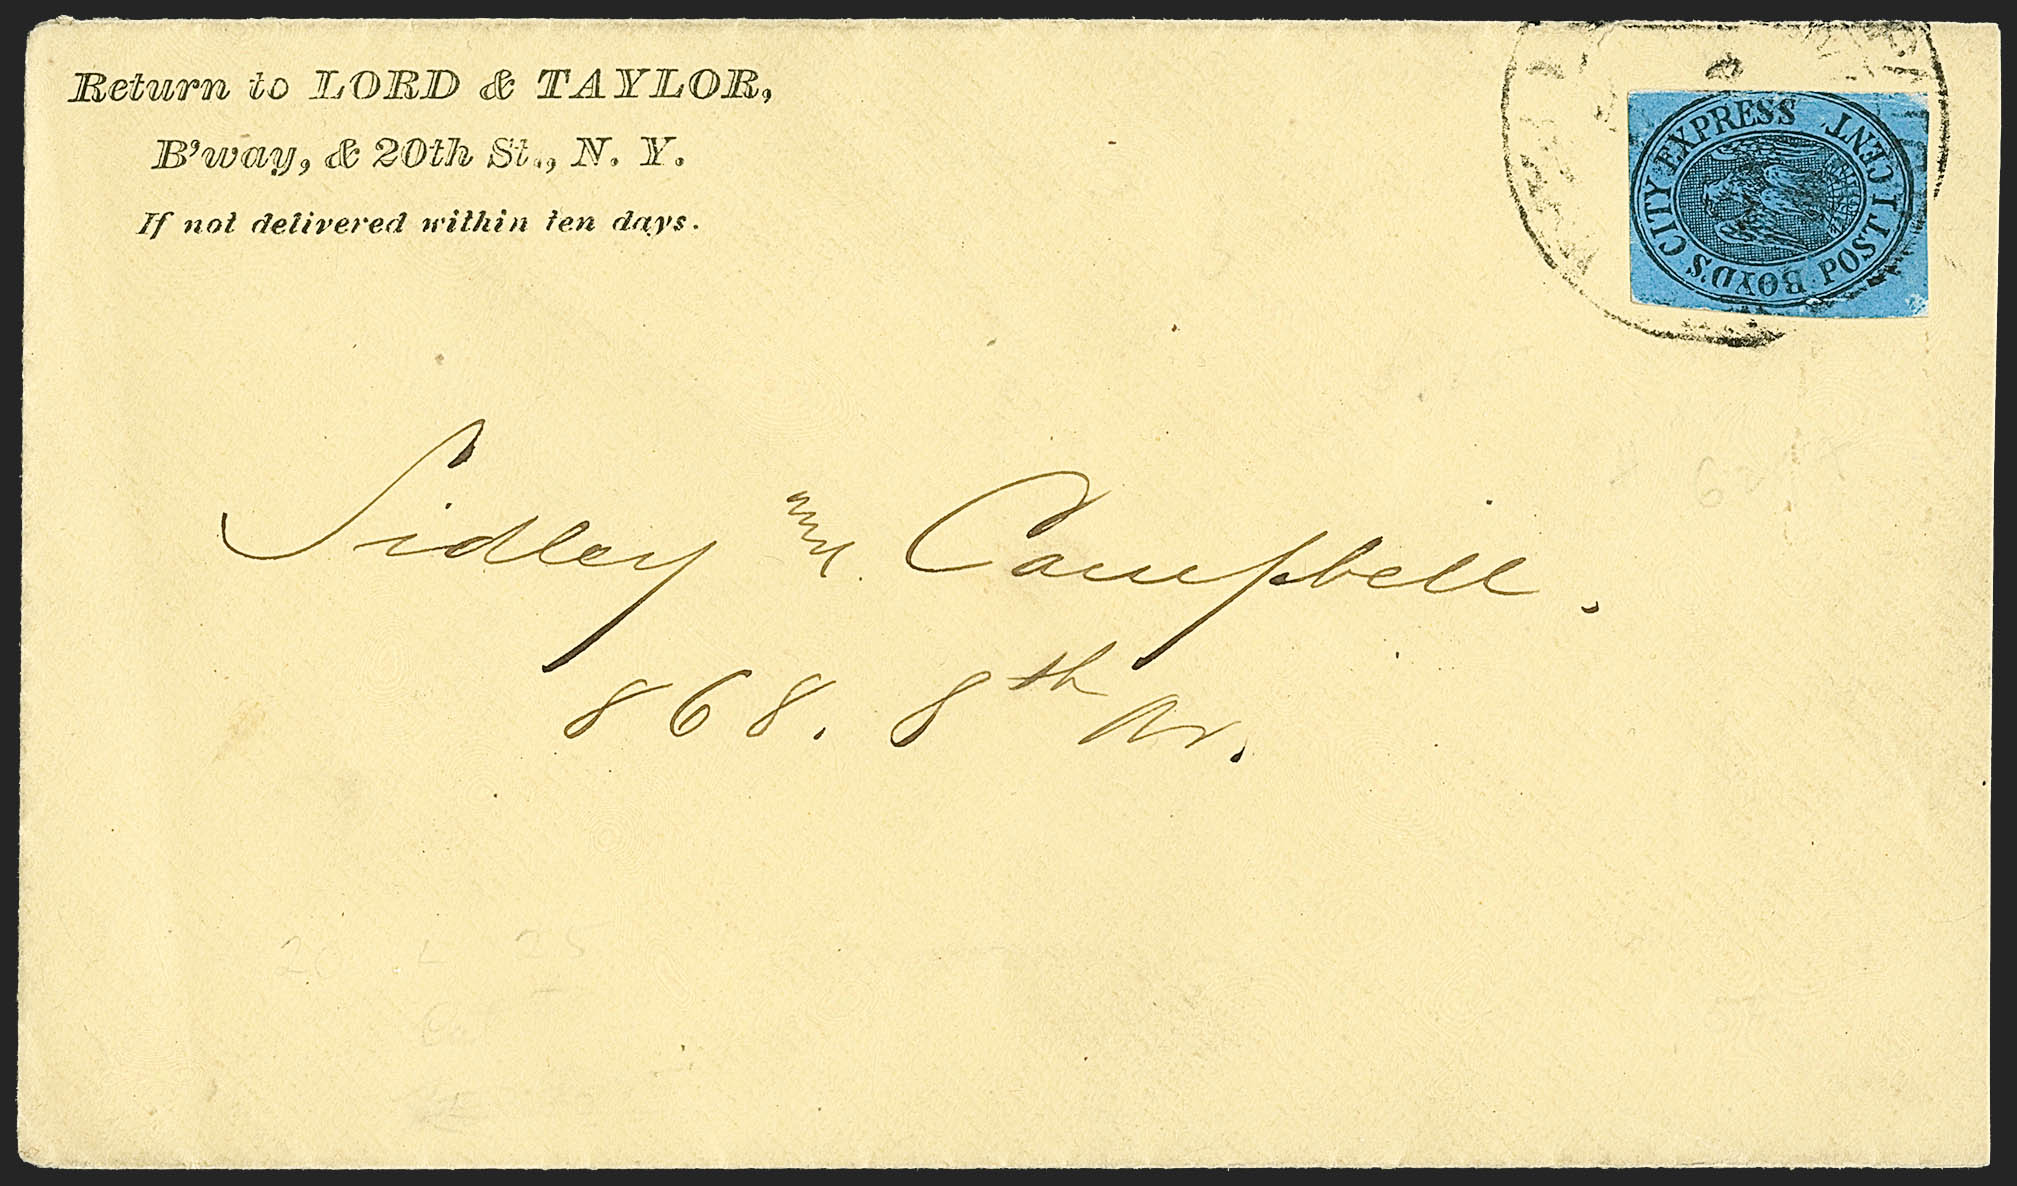 Return to LORD & TAYLOR,
B'way, & 20th St., N. Y.
If not delivered within ten days.
BOYD'S CITY EXPRESS
POST 1 CENT.
Sidley Campbell.
868. 8th Av.